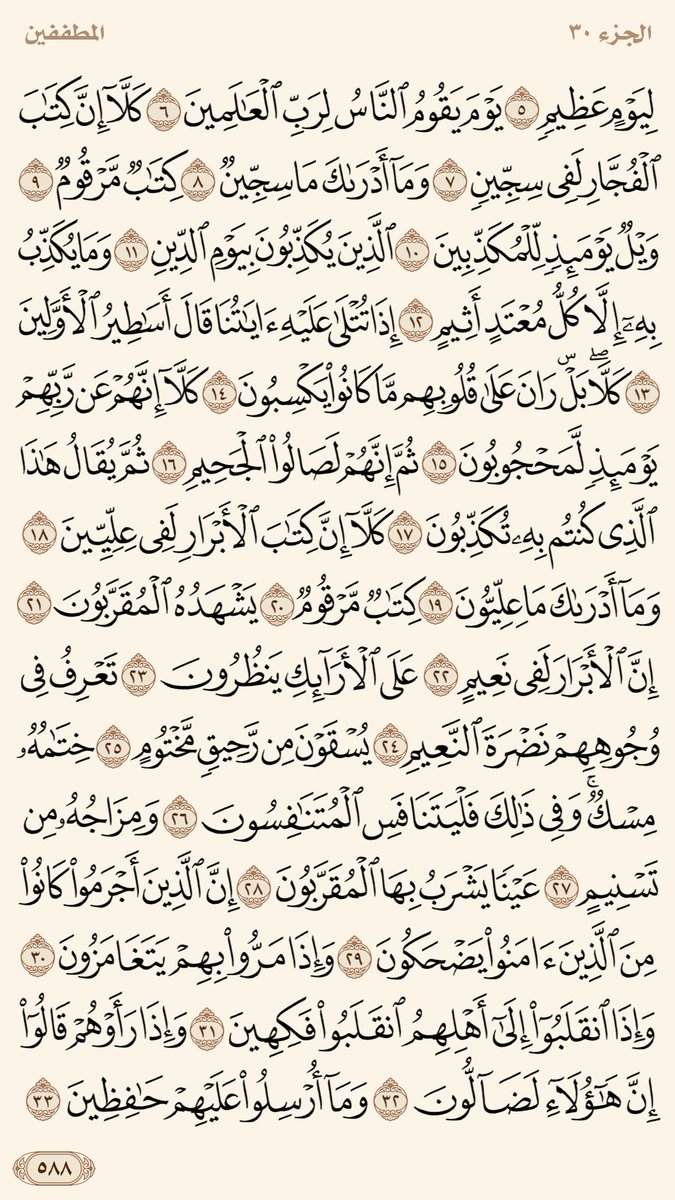 الجزء ٣٠
المطففين
لِيَوْمٍ عَظِيمٍ ٥ يَوْمَ يَقُومُ ٱلنَّاسُ لِرَبِّ ٱلْعَـٰلَمِينَ ٦ كَلَّآ إِنَّ كِتَـٰبَ
ٱلْفُجَّارِ لَفِى سِجِّينٍ ٧ وَمَآ أَدْرَىٰكَ مَا سِجِّينٌ ٨ كِتَـٰبٌ مَّرْقُومٌ ٩
وَيْلٌ يَوْمَئِذٍ لِّلْمُكَذِّبِينَ ١٠ ٱلَّذِينَ يُكَذِّبُونَ بِيَوْمِ ٱلدِّينِ ١١ وَمَا يُكَذِّبُ
بِهِۦٓ إِلَّا كُلُّ مُعْتَدٍ أَثِيمٍ ١٢ إِذَا تُتْلَىٰ عَلَيْهِ ءَايَـٰتُنَا قَالَ أَسَـٰطِيرُ ٱلْأَوَّلِينَ
١٣ كَلَّا ۖ بَلْ ۜ رَانَ عَلَىٰ قُلُوبِهِم مَّا كَانُوا۟ يَكْسِبُونَ ١٤ كَلَّآ إِنَّهُمْ عَن رَّبِّهِمْ
يَوْمَئِذٍ لَّمَحْجُوبُونَ ١٥ ثُمَّ إِنَّهُمْ لَصَالُوا۟ ٱلْجَحِيمِ ١٦ ثُمَّ يُقَالُ هَـٰذَا
ٱلَّذِى كُنتُم بِهِۦ تُكَذِّبُونَ ١٧ كَلَّآ إِنَّ كِتَـٰبَ ٱلْأَبْرَارِ لَفِى عِلِّيِّينَ ١٨
وَمَآ أَدْرَىٰكَ مَا عِلِّيُّونَ ١٩ كِتَـٰبٌ مَّرْقُومٌ ٢٠ يَشْهَدُهُ ٱلْمُقَرَّبُونَ ٢١
إِنَّ ٱلْأَبْرَارَ لَفِى نَعِيمٍ ٢٢ عَلَى ٱلْأَرَآئِكِ يَنظُرُونَ ٢٣ تَعْرِفُ فِى
وُجُوهِهِمْ نَضْرَةَ ٱلنَّعِيمِ ٢٤ يُسْقَوْنَ مِن رَّحِيقٍ مَّخْتُومٍ ٢٥ خِتَـٰمُهُۥ
مِسْكٌ ۚ وَفِى ذَٰلِكَ فَلْيَتَنَافَسِ ٱلْمُتَنَـٰفِسُونَ ٢٦ وَمِزَاجُهُۥ مِن
تَسْنِيمٍ ٢٧ عَيْنًا يَشْرَبُ بِهَا ٱلْمُقَرَّبُونَ ٢٨ إِنَّ ٱلَّذِينَ أَجْرَمُوا۟ كَانُوا۟
مِنَ ٱلَّذِينَ ءَامَنُوا۟ يَضْحَكُونَ ٢٩ وَإِذَا مَرُّوا۟ بِهِمْ يَتَغَامَزُونَ ٣٠
وَإِذَا ٱنقَلَبُوٓا۟ إِلَىٰٓ أَهْلِهِمُ ٱنقَلَبُوا۟ فَكِهِينَ ٣١ وَإِذَا رَأَوْهُمْ قَالُوٓا۟
إِنَّ هَـٰٓؤُلَآءِ لَضَآلُّونَ ٣٢ وَمَآ أُرْسِلُوا۟ عَلَيْهِمْ حَـٰفِظِينَ ٣٣
٥٨٨